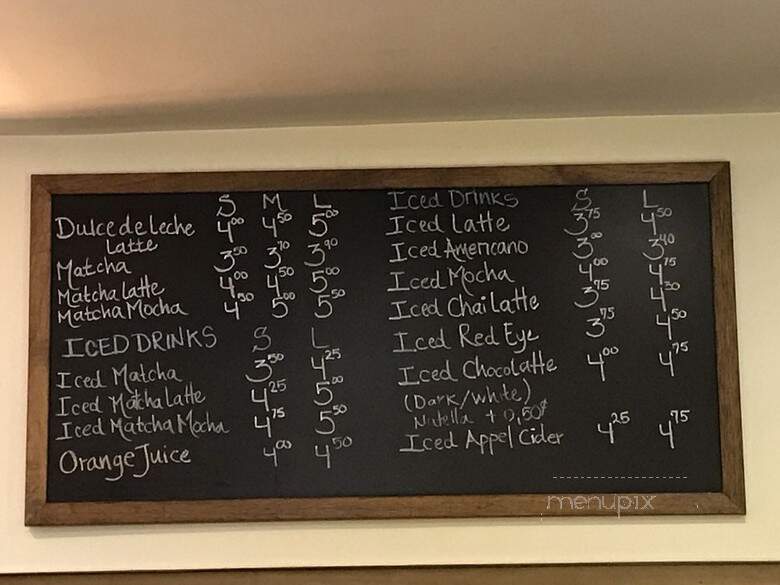 S M L
Dulce de Leche 4.00 4.50 5.00
Latte
Matcha 3.50 3.70 3.90
Matcha Latte 4.00 4.50 5.00
Matcha Mocha 4.50 5.00 5.50
ICED DRINKS S L
Iced Matcha 3.50 4.25
Iced Matcha Latte 4.25 5.00
Iced Matcha Mocha 4.75 5.50
Orange Juice 4.00 4.50
Iced Drinks S L
Iced Latte 3.75 4.50
Iced Americano 3.00 3.40
Iced Mocha 4.00 4.75
Iced Chai Latte 3.75 4.50
Iced Red Eye 3.75 4.50
Iced Chocolatte 4.00 4.75
(Dark/white)
Nutella + 0,50¢
Iced Appel Cider 4.25 4.75
menupix